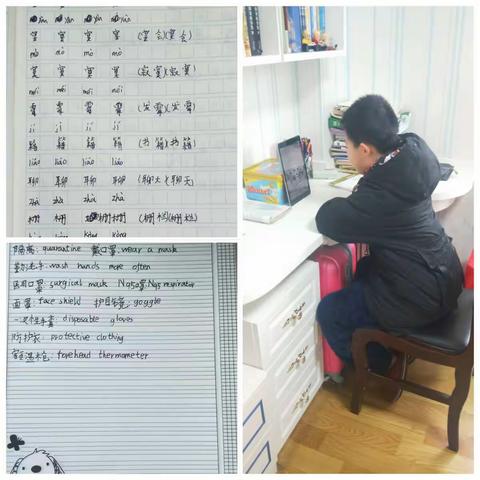 yàn yàn yàn yàn
宴 宴 宴 宴 (宴会)(宴会)
mò mò mò mò
寞 寞 寞 寞 (寂寞)(寂寞)
méi méi méi méi
霉 霉 霉 霉 (发霉)(发霉)
jí jí jí jí
籍 籍 籍 籍 (书籍)(书籍)
liáo liáo liáo liáo
聊 聊 聊 聊 (聊天)(聊天)
zhà zhà zhà zhà
栅 栅 栅 栅 (栅栏)(栅栏)
kǒng kǒng
隔离: quarantine 戴口罩: wear a mask
勤洗手: wash hands more often
医用口罩: surgical mask N95口罩: N95 respirator
面罩: face shield 护目镜: goggle
一次性手套: disposable gloves
防护衣: protective clothing
额温枪: forehead thermometer